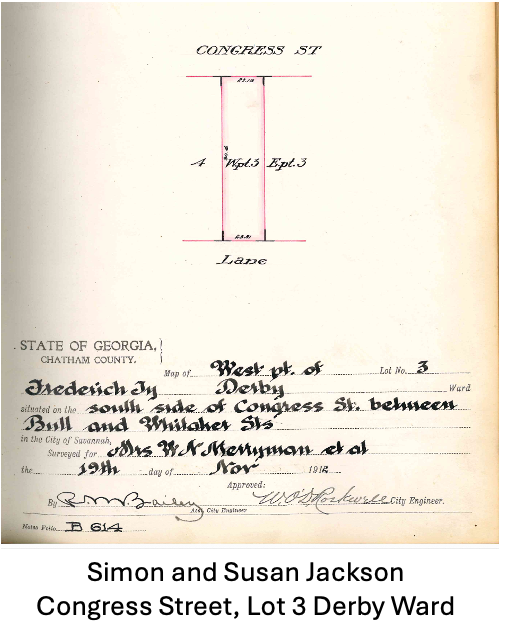 CONGRESS ST
4 Wpt.3 Ept.3
Lane
STATE OF GEORGIA,
CHATHAM COUNTY.
Map of West pt. of Lot No. 3
Frederich Ty Derby Ward
situated on the south side of Congress St. between
Bull and Whitaker Sts
in the City of Savannah,
Surveyed for Mrs W N Merryman et al
the 19th day of Nov 1912
Approved:
By R M W Bailey W O'D Rockwell City Engineer.
Ast. City Engineer
Notes Folio B 614
Simon and Susan Jackson
Congress Street, Lot 3 Derby Ward